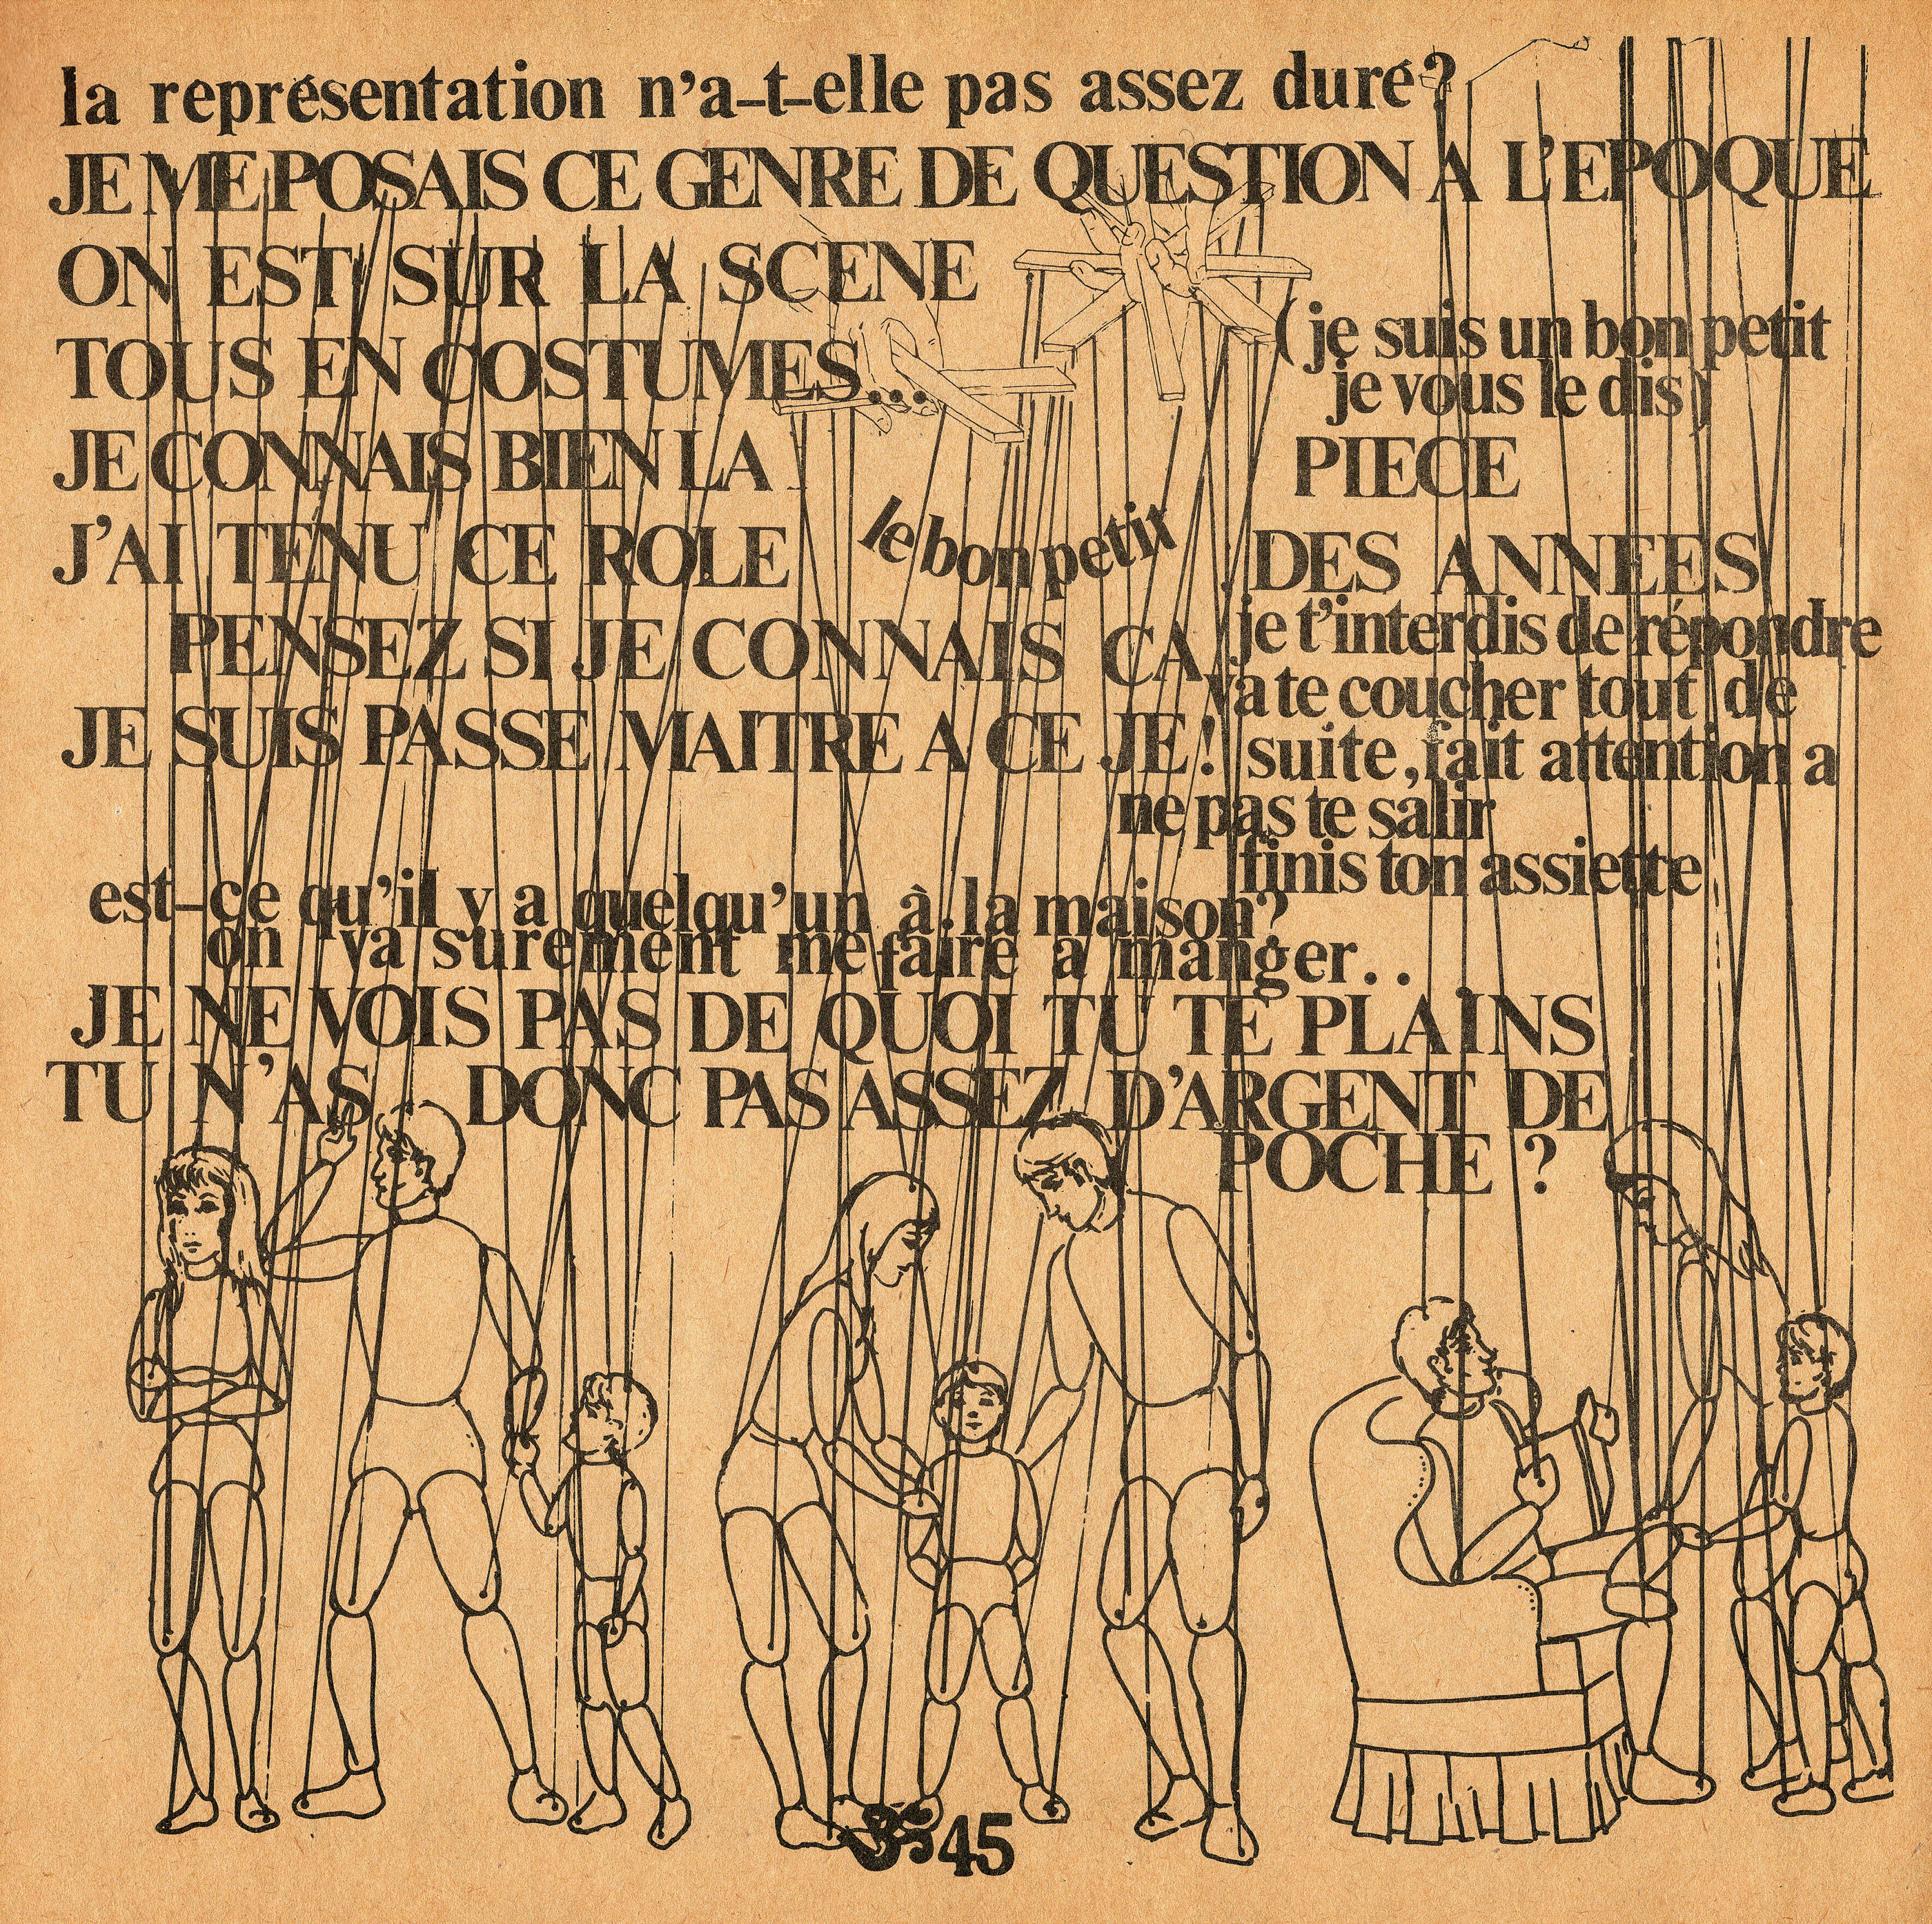 la représentation n'a-t-elle pas assez duré?
JE ME POSAIS CE GENRE DE QUESTION A L'EPOQUE
ON EST SUR LA SCENE
TOUS EN COSTUMES...
(je suis un bon petit
je vous le dis)
JE CONNAIS BIEN LA PIECE
J'AI TENU CE ROLE le bon petit DES ANNEES
PENSEZ SI JE CONNAIS CA
JE SUIS PASSE MAITRE A CE JE!
je t'interdis de répondre
va te coucher tout de
suite, fait attention a
ne pas te salir
finis ton assiette
est-ce qu'il y a quelqu'un à la maison?
on va surement me faire a manger..
JE NE VOIS PAS DE QUOI TU TE PLAINS
TU N'AS DONC PAS ASSEZ D'ARGENT DE
POCHE ?
45